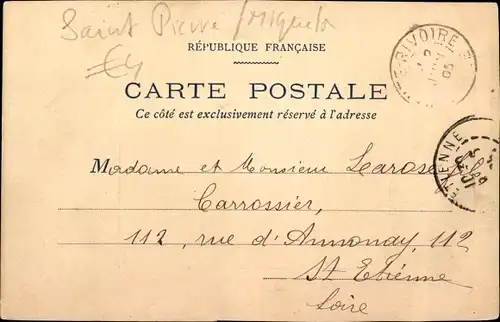 Saint Pierre / Miquelon
€4
RÉPUBLIQUE FRANÇAISE
RIVOIRE
05
CARTE POSTALE
Ce côté est exclusivement réservé à l'adresse
ETIENNE
Madame et Monsieur Larose
Carrossier,
112, rue d'Annonay, 112
St Etienne
Loire